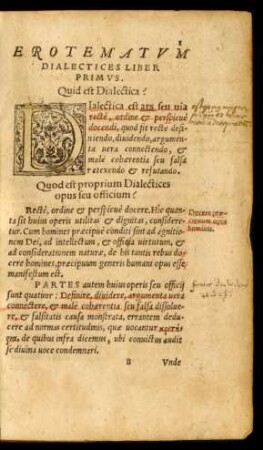 1
EROTEMATVM
DIALECTICES LIBER
PRIMVS.
Quid est Dialectica?
Dialectica est ars seu uia
rectè, ordine & perspicuè
docendi, quod fit rectè defi-
niendo, diuidendo, argumen-
ta uera connectendo, &
malè cohærentia seu falsa
retexendo & refutando.
Quod est proprium Dialectices
opus seu officium?
Rectè, ordine & perspicuè docere. Hic quan-
ta sit huius operis utilitas & dignitas, considere-
tur. Cum homines præcipuè conditi sint ad agnitio-
nem Dei, ad intellectum, & officia uirtutum, &
ad considerationem naturæ, de his tantis rebus do-
cere homines, præcipuum generis humani opus esse
manifestum est.
PARTES autem huius operis seu officij
sunt quatuor: Definire, diuidere, argumenta uera
connectere, & malè cohærentia seu falsa dissolue-
re, & falsitatis causa monstrata, errantem dedu-
cere ad normas certitudinis, quæ uocantur
de quibus infra dicemus, ubi conuictus audit
se diuina uoce condemneri.
B Vnde